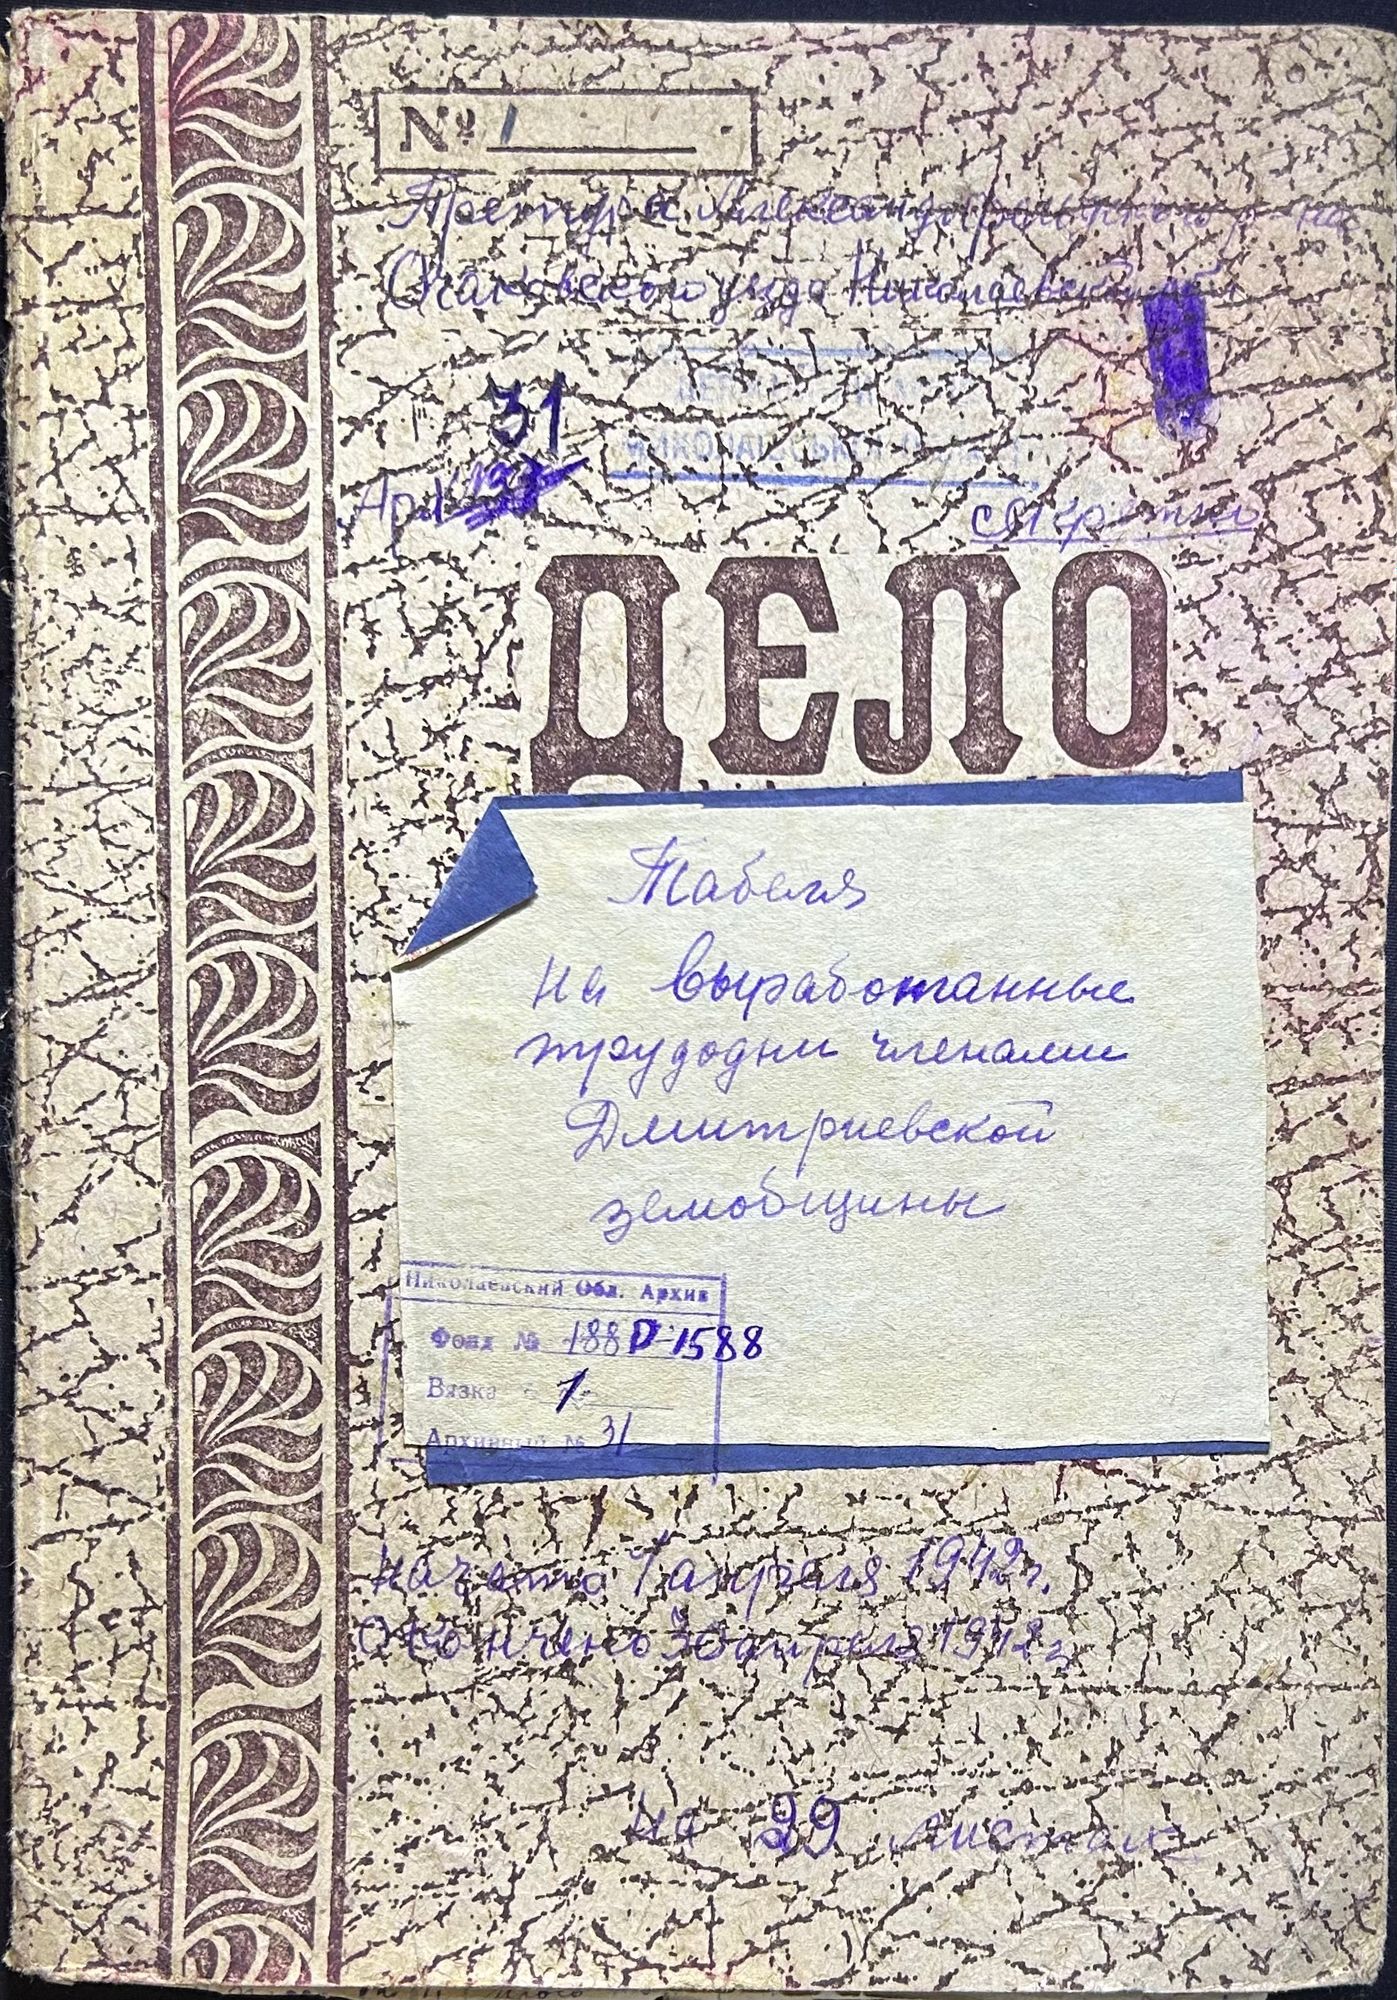 № 1
Претура Александрфельдского р-на
Очаковского уезда Николаевской обл
31
ДЕРЖАВНИЙ АРХІВ
МИКОЛАЇВСЬКОЇ ОБЛАСТІ
Арх
ДЕЛО
Табеля
на выработанные
трудодни членами
Дмитриевской
земобщины
Николаевский Обл. Архив
Фонд № 188 Р-1588
Вязка 1
Архивный № 31
Начато 1 апреля 1942 г.
Окончено 30 апреля 1942 г
На 29 листах